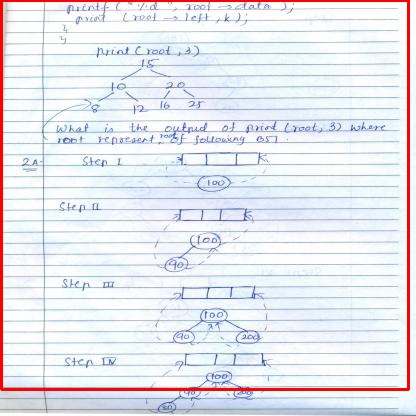 printf ( " %d ", root → data );
print ( root → left, k );
}
}
print ( root, 3 )
15
10 20
8 12 16 25
What is the output of print ( root, 3 ) where
root represent root of following BST .
2A- Step I
100
Step II
100
90
Step III
100
90 200
Step IV
100
90 200